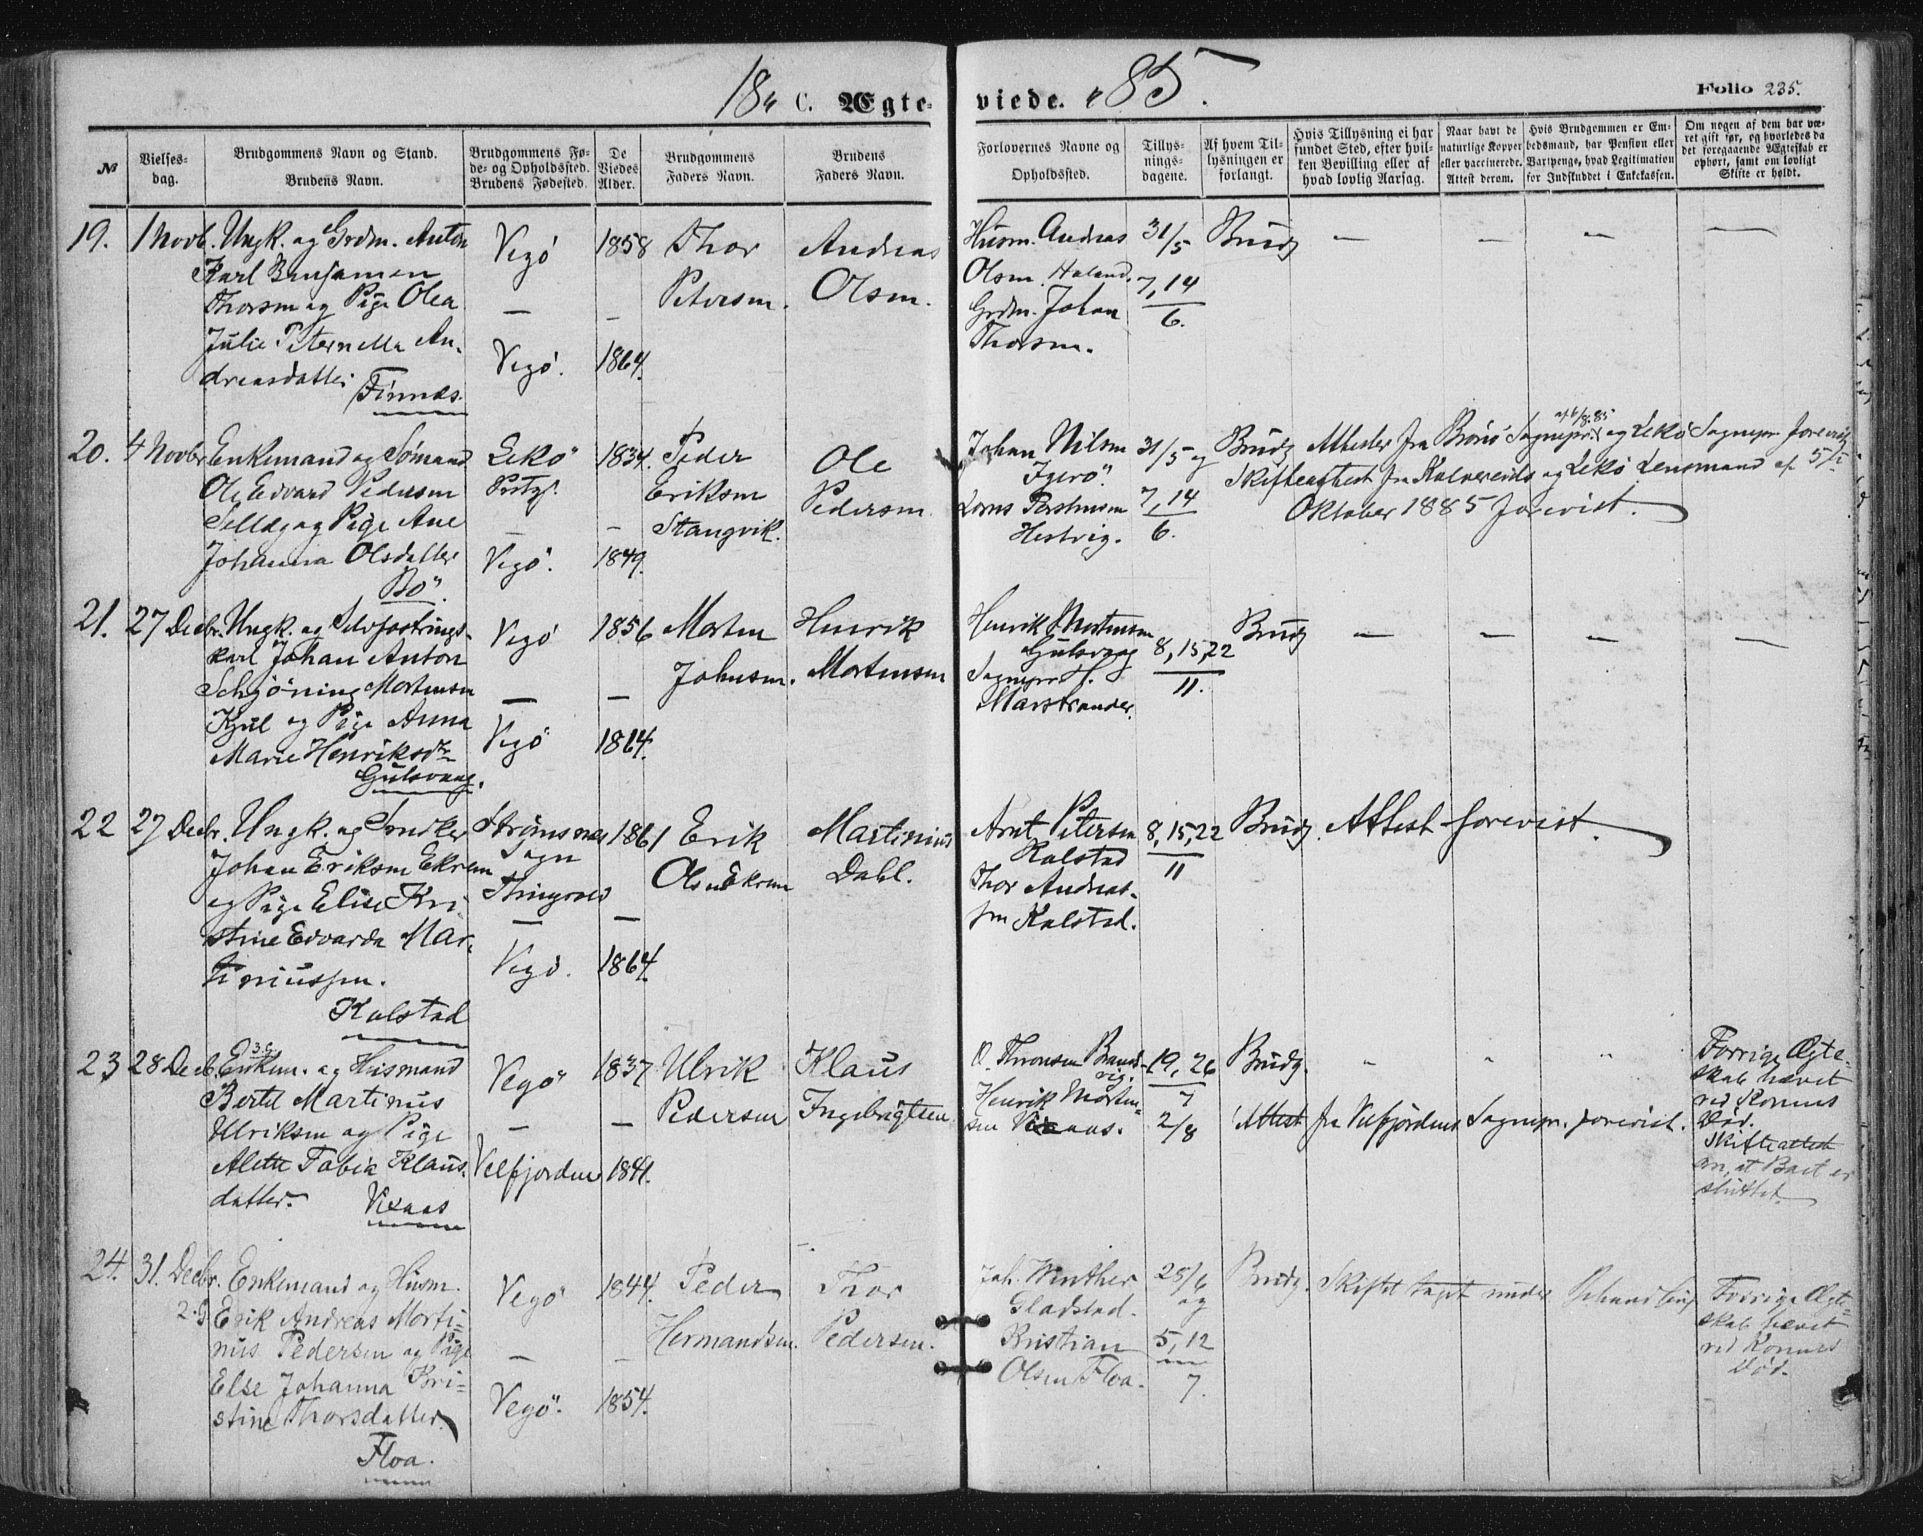 18 " C. Ægte-viede. " 85.
Folio 235.
№
Vielses-dag.
Brudgommens Navn og Stand.
Brudens Navn.
Brudgommens Fø-
de- og Opholdssted.
Brudens Fødested.
De
Viedes
Alder.
Brudgommens
Faders Navn.
Brudens
Faders Navn.
Forlovernes Navne og
Opholdssted.
Tillys-
nings-
dagene.
Af hvem Til-
lysningen er
forlangt.
Hvis Tillysning ei har
fundet Sted, efter hvil-
ken Bevilling eller af
hvad lovlig Aarsag.
Naar havt de
naturlige Kopper
eller vaccinerede.
Attest derom.
Hvis Brudgommen er Em-
bedsmand, har Pension eller
Vartpenge, hvad Legitimation
for Indskuddet i Enkekassen.
Om nogen af dem har væ-
ret gift før, og hvorledes da
det foregaaende Ægteskab er
ophørt, samt om lovligt
Skifte er holdt.
19. 1 Novb. Ungk. og Grdm. Anton
Karl Benjamen
Thorsen og Pige Olea
Julie Peternella An-
dreasdatter
Finnæs.
Vegö
—
Vegö.
1858
—
1864.
Thor
Petersen.
Andreas
Olsen.
Husm. Andreas
Olsen Haland.
Grdm. Johan
Thorsen.
31/5
7, 14
6.
Brudg — — — —
20. 4 Novbr Enkemand og Sömand
Ole Edvard Pedersen
og Pige Ane
Johanna Olsdatter
Bö.
Lekö
Prstgj.
—
Vegö.
1834.
—
1849.
Peder
Eriksen
Stangvik.
Ole
Pedersen
Johan Nilsen
Igerö.
31/5 og
7, 14
6.
Brudg Attester fra Brönö Sognepr. og Lekö Sognepr. forevist
af 6/8. 85
Skifteattest fra og Lekö Lensmand af 5/
Oktober 1885 forevist.
21. 27 Decbr. Ungk. og Selvfostrings-
karl Johan Anton
Schjöning Mortensen
og Pige Anna
Marie Henriksdtr
Gulsvaag.
Vegö
—
Vegö
1856
—
1864.
Morten
Johnsen.
Henrik
Mortensen
Henrik Mortensen
Gulsvaag
Sognepr. H.
Marstrander.
8, 15, 22
11.
Brudg — — — —
22 27 Decbr. Ungk. og
Johan Eriksen Ekrem
og Pige Elise Kri-
stine Edvarda Mar-
tiniussen.
Kalstad
Strömsnes
Sogn
—
Vegö.
1861
—
1864.
Erik
Olsen Ekrem
Martinius
Dahl.
Arnt Petersen
Kalstad
Thor Andreas-
sen Kalstad.
8, 15, 22
11
Brudg. Attest forevist.
23 28 Decb. Enkem. og Husmand
Bertel Martinus
Ulriksen og Pige
Alette Fabia Klaus-
datter.
Vixaas
Vegö
—
Velfjorden
1837
—
1841.
Ulrik
Pedersen
Klaus
Ingebrigtsen
O. Thronsen
Henrik Morten-
sen Vixaas.
19, 26
7
2/8
Brudg. " " "
Attest fra Velfjordens Sognepr. forevist.
Forrige Ægte-
skab hævet
ved Konens
Död.
Skifteattest
om, at Boet er
sluttet.
24. 31. Decbr. Enkemand og Husm.
2.g Erik Andreas Morti-
nus Pedersen og Pige
Else Johanna Kri-
stine Thorsdatter
Floa.
Vegö
—
Vegö.
1844.
—
1854.
Peder
Hermandsen.
Thor
Pedersen.
Joh. Winther
Gladstad.
Kristian
Olsen Floa.
28/6
og
5, 12
7.
Brudg. Skiftet taget under Behandling
Forrige Ægte-
skab hævet
ved Konens
Död.